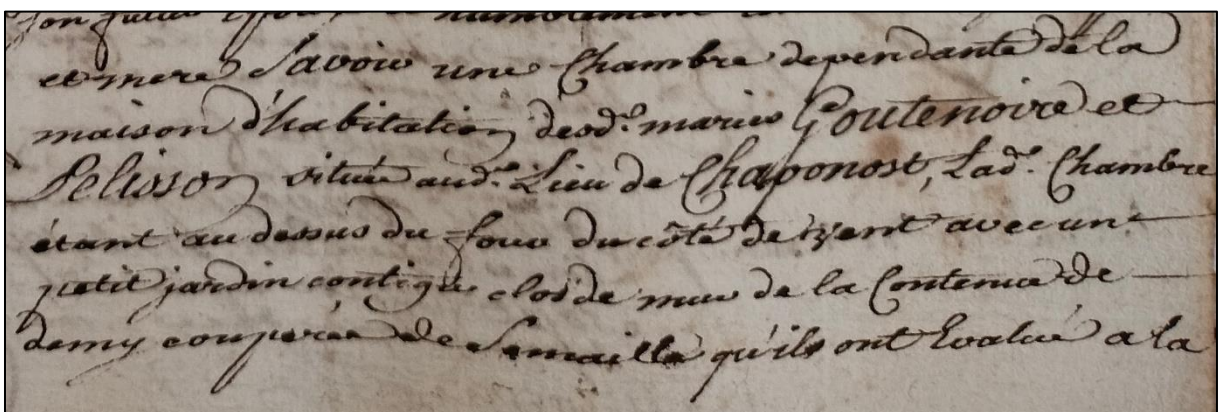 et mere Savoir une Chambre dependante de la
maison d'habitation desd.s maries Goutenoire et
Pelisson située aud.t Lieu de Chaponost, Lad.e Chambre
étant au dessus du four du côté de vent avec un
petit jardin contigu clos de mur de la Contenue de
demy couperée de Semaille qu'ils ont Evalué a la